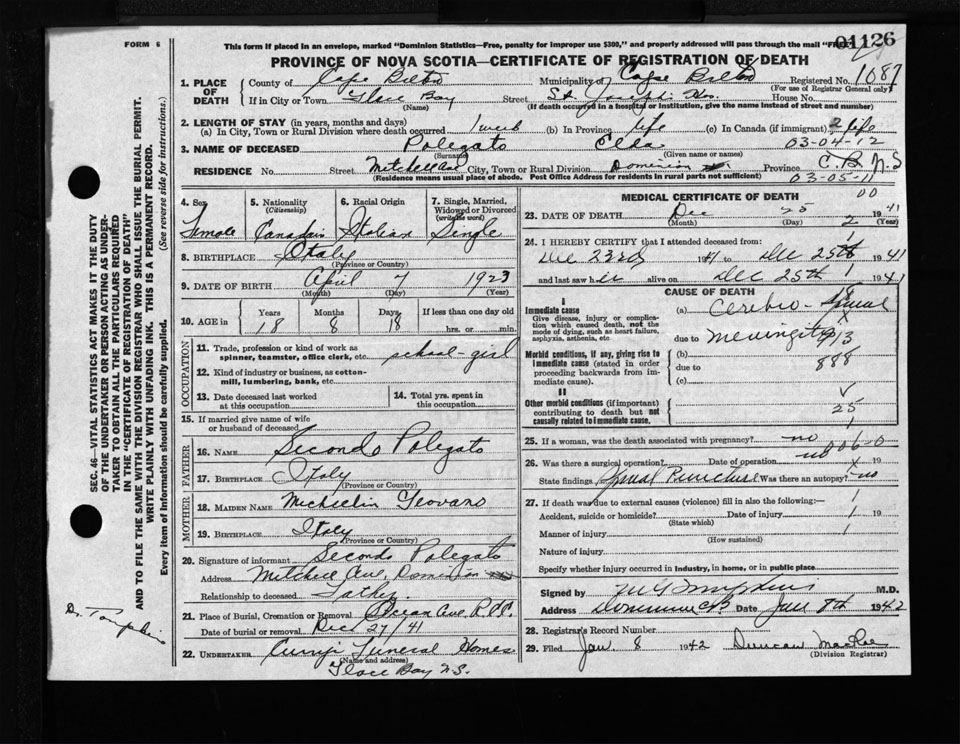 FORM 6
This form if placed in an envelope, marked "Dominion Statistics—Free, penalty for improper use $300," and properly addressed will pass through the mail "Free."
01126
PROVINCE OF NOVA SCOTIA—CERTIFICATE OF REGISTRATION OF DEATH
1. PLACE OF DEATH
County of Cape Breton Municipality of Cape Breton Registered No. 1087
(For use of Registrar General only)
If in City or Town Glace Bay Street St. Joseph's Hos. House No.
(Name) (If death occurred in a hospital or institution, give the name instead of street and number)
2. LENGTH OF STAY (in years, months and days)
(a) In City, Town or Rural Division where death occurred 1 week (b) In Province life (c) In Canada (if immigrant) life
03-04-12
3. NAME OF DECEASED Polegato Elda
(Surname) (Given name or names)
RESIDENCE No. Street Mitchell Ave City, Town or Rural Division Dominion Province C.B. N.S
(Residence means usual place of abode. Post Office Address for residents in rural parts not sufficient) 03-05-11
4. Sex Female
5. Nationality (Citizenship) Canadian
6. Racial Origin Italian
7. Single, Married, Widowed or Divorced (write the word) Single
8. BIRTHPLACE Italy
(Province or Country)
9. DATE OF BIRTH April 7 1923
(Month) (Day) (Year)
10. AGE in Years 18 Months 8 Days 18 If less than one day old hrs. or min.
OCCUPATION
11. Trade, profession or kind of work as spinner, teamster, office clerk, etc. school-girl
12. Kind of industry or business, as cotton-mill, lumbering, bank, etc.
13. Date deceased last worked at this occupation
14. Total yrs. spent in this occupation
15. If married give name of wife or husband of deceased
FATHER
16. NAME Secondo Polegato
17. BIRTHPLACE Italy
(Province or Country)
MOTHER
18. MAIDEN NAME Michaelin Geovans
19. BIRTHPLACE Italy
(Province or Country)
20. Signature of informant Secondo Polegato
Address Mitchell Ave, Dominion
Relationship to deceased Father
21. Place of Burial, Cremation or Removal Ocean Ave R.C.C.
Date of burial or removal Dec 27/41
22. UNDERTAKER Curry's Funeral Homes
(Name and address)
Glace Bay N.S.
MEDICAL CERTIFICATE OF DEATH
00
23. DATE OF DEATH Dec 25 1941
(Month) (Day) 2 (Year)
24. I HEREBY CERTIFY that I attended deceased from:
Dec 23rd 1941 to Dec 25th 1941
and last saw her alive on Dec 25th 1941
CAUSE OF DEATH
I
Immediate cause
Give disease, injury or complication which caused death, not the mode of dying, such as heart failure, asphyxia, asthenia, etc
(a) Cerebro-Spinal
due to Meningitis
Morbid conditions, if any, giving rise to immediate cause (stated in order proceeding backwards from immediate cause).
(b)
due to 888
(c)
II
Other morbid conditions (if important) contributing to death but not causally related to immediate cause.
25
25. If a woman, was the death associated with pregnancy? no
006-0
26. Was there a surgical operation? no Date of operation
State findings Spinal Puncture Was there an autopsy? no
27. If death was due to external causes (violence) fill in also the following:—
Accident, suicide or homicide? Date of injury 19
(State which)
Manner of injury
(How sustained)
Nature of injury
Specify whether injury occurred in industry, in home, or in public place
Signed by M.D.
Address Dominion CB Date Jan 8th 1942
28. Registrar's Record Number
29. Filed Jan. 8 1942 Duncan MacRae
(Division Registrar)
SEC. 46—VITAL STATISTICS ACT MAKES IT THE DUTY OF THE UNDERTAKER OR PERSON ACTING AS UNDERTAKER TO OBTAIN ALL THE PARTICULARS REQUIRED IN THE "CERTIFICATE OF REGISTRATION OF DEATH" AND TO FILE THE SAME WITH THE DIVISION REGISTRAR WHO SHALL ISSUE THE BURIAL PERMIT.
WRITE PLAINLY WITH UNFADING INK. THIS IS A PERMANENT RECORD.
Every item of information should be carefully supplied. (See reverse side for instructions.)
Dr. Tompkins